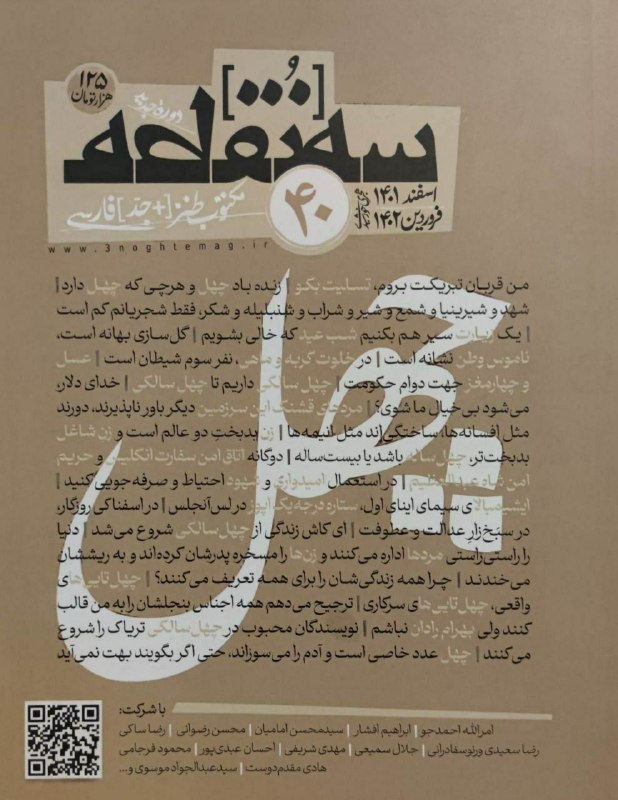 ۱۲۵
هزار تومان
دوره‌جدید
سه‌نقطه
[و...]
مکتوب طنز [+جد] فارسی
۴۰
اسفند ۱۴۰۱
فروردین ۱۴۰۲
www.3noghtemag.ir
چهل
من قربان تبریکت بروم، تسلیت بگو | زنده باد چهل و هرچی که چهل دارد |
شهد و شیرینیا و شمع و شیر و شراب و شنبلیله و شکر، فقط شجریانم کم است
| یک زیارت سیر هم بکنیم شب عید که خالی بشویم | گل‌سازی بهانه است،
ناموس وطن نشانه است | در خلوت گربه و ماهی، نفر سوم شیطان است | عسل
و چهارمغز جهت دوام حکومت | چهل سالگی داریم تا چهل سالگی | خدای دلار،
می‌شود بی‌خیال ما شوی؟ | مردهای قشنگ این سرزمین دیگر باور ناپذیرند، دورند
مثل افسانه‌ها، ساختگی‌اند مثل انیمه‌ها | زن بدبختِ دو عالم است و زن شاغل
بدبخت‌تر، چهل ساله باشد یا بیست‌ساله | دوگانه اتاق امن سفارت انگلیس و حریم
امن شاه عبدالعظیم | در استعمال امیدواری و شهود احتیاط و صرفه‌جویی کنید |
ی سیمای اینای اول، ستاره درجه یک اپوز در لس‌آنجلس | در اسفناکی روزگار،
در سبَخ‌زارِ عدالت و عطوفت | ای کاش زندگی از چهل سالگی شروع می‌شد | دنیا
را راستی‌راستی مردها اداره می‌کنند و زن‌ها را مسخره پدرشان کرده‌اند و به ریششان
می‌خندند | چرا همه زندگی‌شان را برای همه تعریف می‌کنند؟ | چهل تایی‌های
واقعی، چهل‌تایی‌های سرکاری | ترجیح می‌دهم همه اجناس بنجلشان را به من قالب
کنند ولی بهرام رادان نباشم | نویسندگان محبوب در چهل سالگی تریاک را شروع
می‌کنند | چهل عدد خاصی است و آدم را می‌سوزاند، حتی اگر بگویند بهت نمی‌آید
با شرکت:
امرالله احمدجو | ابراهیم افشار | سیدمحسن امامیان | محسن رضوانی | رضا ساکی
رضا سعیدی ورنوسفادرانی | جلال سمیعی | مهدی شریفی | احسان عبدی‌پور | محمود فرجامی
هادی مقدم‌دوست | سیدعبدالجواد موسوی و...